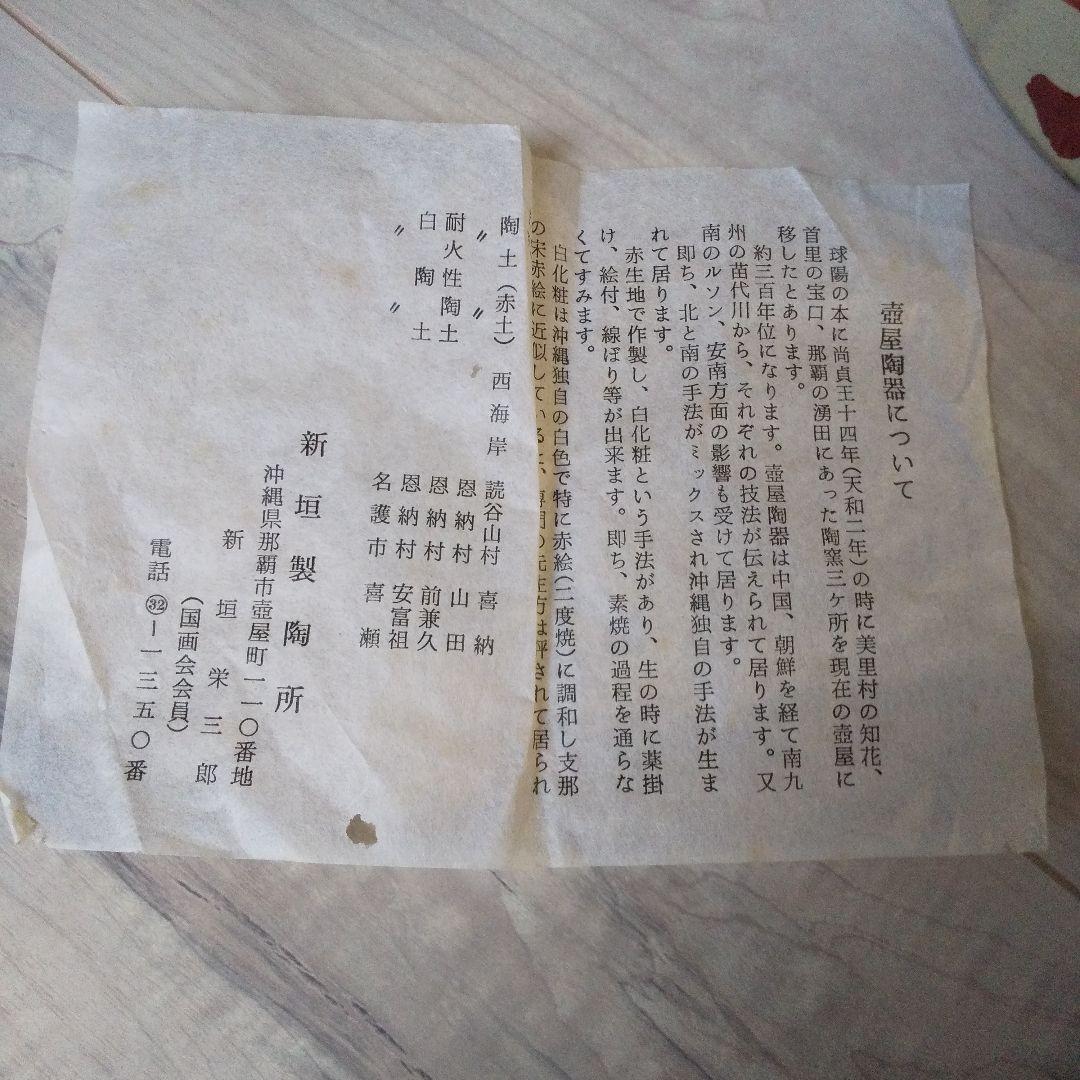 壺屋陶器について
球陽の本に尚貞王十四年(天和二年)の時に美里村の知花、
首里の宝口、那覇の湧田にあった陶窯三ケ所を現在の壺屋に
移したとあります。
約三百年位になります。壺屋陶器は中国、朝鮮を経て南九
州の苗代川から、それぞれの技法が伝えられて居ります。又
南のルソン、安南方面の影響も受けて居ります。
即ち、北と南の手法がミックスされ沖縄独自の手法が生ま
れて居ります。
赤生地で作製し、白化粧という手法があり、生の時に薬掛
け、絵付、線ぼり等が出来ます。即ち、素焼の過程を通らな
くてすみます。
白化粧は沖縄独自の白色で特に赤絵(二度焼)に調和し支那
の宋赤絵に近似していると、専門の先生方は評されて居られ
陶土(赤土) 西海岸 読谷山村 喜納
〃 〃 恩納村 山田
耐火性陶土 恩納村 前兼久
白陶土 恩納村 安富祖
〃 〃 名護市 喜瀬
新垣製陶所
沖縄県那覇市壺屋町一一〇番地
新垣栄三郎
(国画会会員)
電話㉜-一三五〇番